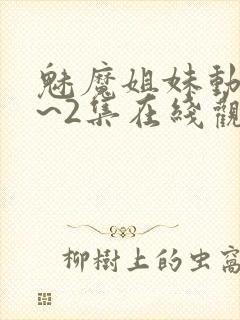 魅魔姐妹動
~2集在綫觀
柳樹上的虫窩